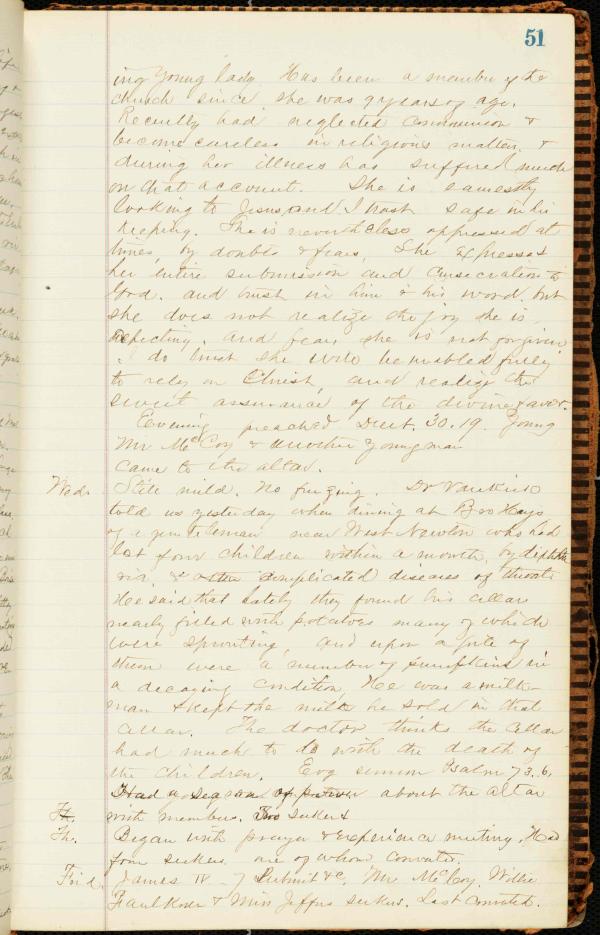 51
ing young lady. Has been a member of the
church since she was 9 years of age.
Recently had neglected communion &
become careless in religious matters, &
during her illness has suffered much
on that account. She is earnestly
looking to Jesus, and I trust safe in his
keeping. She is nevertheless oppressed at
times, by doubts & fears, She expresses
her entire submission and consecration to
God. and trust in him & his word. but
she does not realize the joy she is
expecting. and fears she is not forgiven
I do trust she will be enabled fully
to rely on Christ, and realize the
sweet assurance of the divine favor.
Evening preached Deut. 30.19. Young
Mr McCoy & another young man
came to the altar.
Wed. Still mild. No freezing. Dr Vankirk
told us yesterday when dining at Bro Hays
of a gentleman near West Newton who had
lost four children within a month, by diphthe
ria, & other complicated diseases of throat.
He said that lately they found his cellar
nearly filled with potatoes many of which
were sprouting, and upon a pile of
them were a number of pumpkins in
a decaying condition, He was a milk-
man & kept the milk he sold in that
cellar. The doctor thinks the cellar
had much to do with the death of
the children. Evg sermon Psalm 73.6.
Had a season of about the altar
with members. Two seekers
Th.
Th. Began with prayer & experience meeting. Had
four seekers one of whom converted.
Frid. James IV - 7 Submit &c. Mr McCoy, Willie
Faulkner & Miss Jeffris seekers. Last converted.